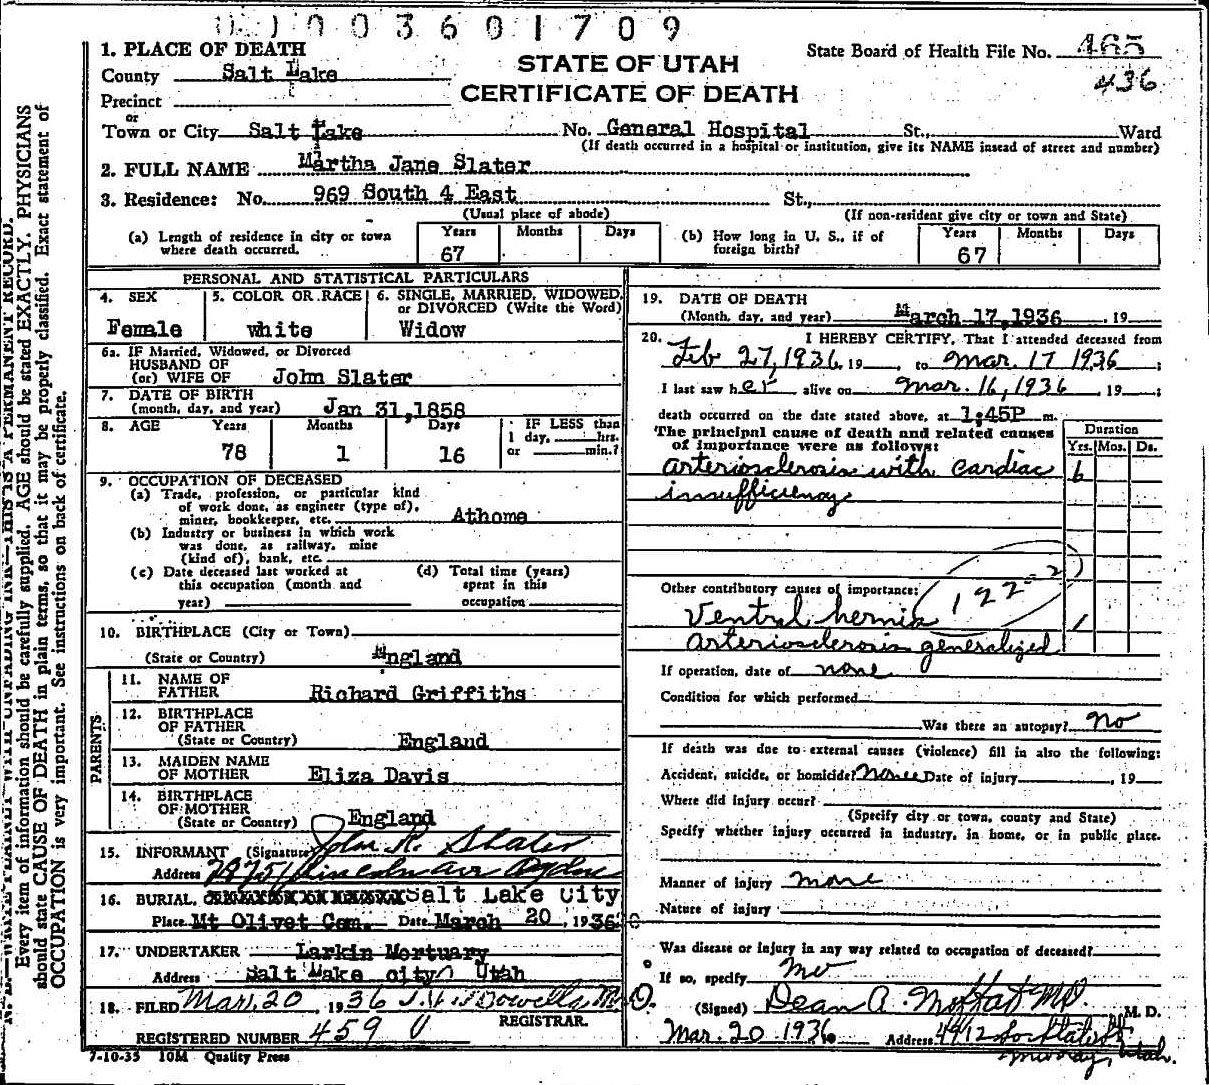 003601709
1. PLACE OF DEATH
STATE OF UTAH
CERTIFICATE OF DEATH
State Board of Health File No. 465
436
County Salt Lake
Precinct
or
Town or City Salt Lake No. General Hospital St., Ward
(If death occurred in a hospital or institution, give its NAME insead of street and number)
2. FULL NAME Martha Jane Slater
3. Residence: No. 969 South 4 East St.,
(Usual place of abode) (If non-resident give city or town and State)
(a) Length of residence in city or town where death occurred. Years 67 Months Days
(b) How long in U. S., if of foreign birth? Years 67 Months Days
PERSONAL AND STATISTICAL PARTICULARS
4. SEX Female
5. COLOR OR RACE white
6. SINGLE, MARRIED, WIDOWED, or DIVORCED (Write the Word) Widow
6a. IF Married, Widowed, or Divorced
HUSBAND OF
(or) WIFE OF John Slater
7. DATE OF BIRTH
(month, day, and year) Jan 31,1858
8. AGE Years 78 Months 1 Days 16 IF LESS than 1 day, hrs. or min.?
9. OCCUPATION OF DECEASED
(a) Trade, profession, or particular kind
of work done, as engineer (type of),
miner, bookkeeper, etc. Athome
(b) Industry or business in which work
was done, as railway, mine
(kind of), bank, etc.
(c) Date deceased last worked at
this occupation (month and
year)
(d) Total time (years)
spent in this
occupation
10. BIRTHPLACE (City or Town)
(State or Country) England
PARENTS
11. NAME OF
FATHER Richard Griffiths
12. BIRTHPLACE
OF FATHER
(State or Country) England
13. MAIDEN NAME
OF MOTHER Eliza Davis
14. BIRTHPLACE
OF MOTHER
(State or Country) England
15. INFORMANT (Signature) John R. Slater
Address Lincoln Ave Ogden
16. BURIAL, Salt Lake City
Place Mt Olivet Cem. Date March 20, 1936
17. UNDERTAKER Larkin Mortuary
Address Salt Lake city Utah
18. FILED Mar. 20, 1936 M.D.
REGISTRAR.
REGISTERED NUMBER 459
7-10-35 10M Quality Press
19. DATE OF DEATH
(Month, day, and year) March 17,1936, 19
20. I HEREBY CERTIFY, That I attended deceased from
Feb 27, 1936, 19 , to Mar. 17 1936;
I last saw her alive on Mar. 16, 1936, 19 ;
death occurred on the date stated above, at 1;45P m.
The principal cause of death and related causes
of importance were as follows:
Duration
Yrs. Mos. Ds.
arteriosclerosis with cardiac 6
insufficiency
Other contributory causes of importance: 122-2
Ventral hernia 1
arteriosclerosis generalized
If operation, date of none
Condition for which performed
Was there an autopsy? No
If death was due to external causes (violence) fill in also the following:
Accident, suicide, or homicide? None Date of injury , 19
Where did injury occur?
(Specify city or town, county and State)
Specify whether injury occurred in industry, in home, or in public place.
Manner of injury none
Nature of injury
Was disease or injury in any way related to occupation of deceased?
If so, specify no
(Signed) Dean A. Moffat MD. M. D.
Mar. 20 1936 Address 4912 So State St
Murray, Utah.
N.B.—WRITE PLAINLY WITH UNFADING INK—THIS IS A PERMANENT RECORD.
Every item of information should be carefully supplied. AGE should be stated EXACTLY. PHYSICIANS
should state CAUSE OF DEATH in plain terms, so that it may be properly classified. Exact statement of
OCCUPATION is very important. See instructions on back of certificate.